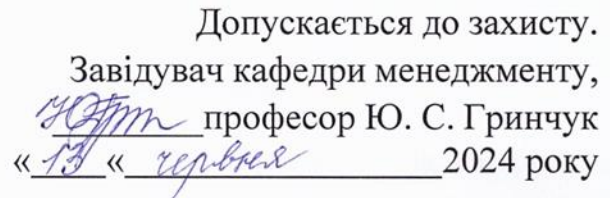 Допускається до захисту.
Завідувач кафедри менеджменту,
професор Ю. С. Гринчук
«13« червня 2024 року